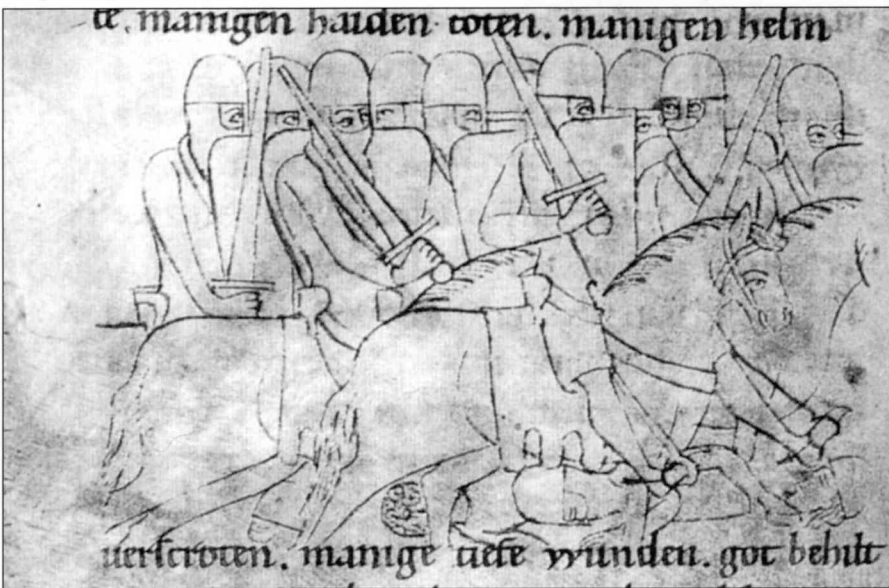 te. manigen haiden toten. manigen helm
uerscroten. manige tiefe wunden. got behilt